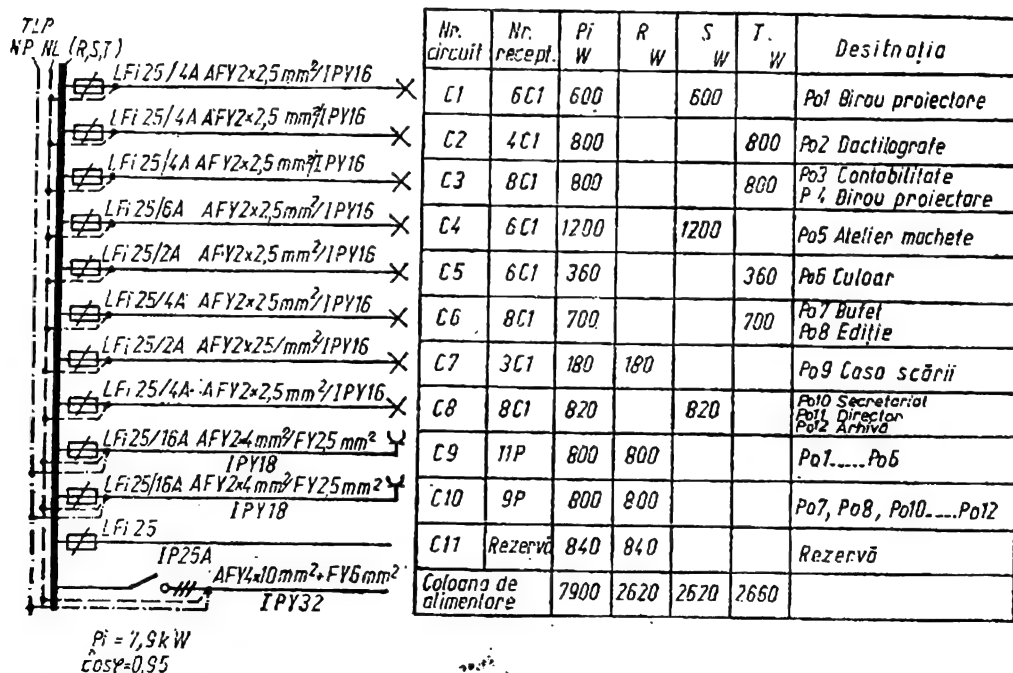 TLP
NP NL (R,S,T)
LFi 25/4A AFY2×2,5 mm²/IPY16
LFi 25/4A AFY2×2,5 mm²/IPY16
LFi 25/4A AFY2×2,5 mm²/IPY16
LFi 25/6A AFY2×2,5mm²/IPY16
LFi 25/2A AFY2×2,5 mm²/IPY16
LFi 25/4A AFY2×25 mm²/IPY16
LFi 25/2A AFY2×25/mm²/IPY16
LFi 25/4A AFY2×2,5 mm²/IPY16
LFi25/16A AFY2×4mm²/FY2,5 mm²
IPY18
LFi 25/16A AFY2×4mm²/FY25mm²
IPY18
LFi 25
IP25A
AFY4×10mm²+FY6mm²
IPY32
Pi = 7,9kW
cosφ=0,95
Nr. circuit Nr. recept. Pi W R W S W T. W Desitnația
C1 6C1 600 600 Po1 Birou proiectare
C2 4C1 800 800 Po2 Dactilografe
C3 8C1 800 800 Po3 Contabilitate
P 4 Birou proiectare
C4 6C1 1200 1200 Po5 Atelier machete
C5 6C1 360 360 Po6 Culoar
C6 8C1 700 700 Po7 Bufet
Po8 Ediție
C7 3C1 180 180 Po9 Casa scării
C8 8C1 820 820 Po10 Secretariat
Po11 Director
Po12 Arhivă
C9 11P 800 800 Po1.....Po6
C10 9P 800 800 Po7, Po8, Po10.....Po12
C11 Rezervă 840 840 Rezervă
Coloana de alimentare 7900 2620 2620 2660